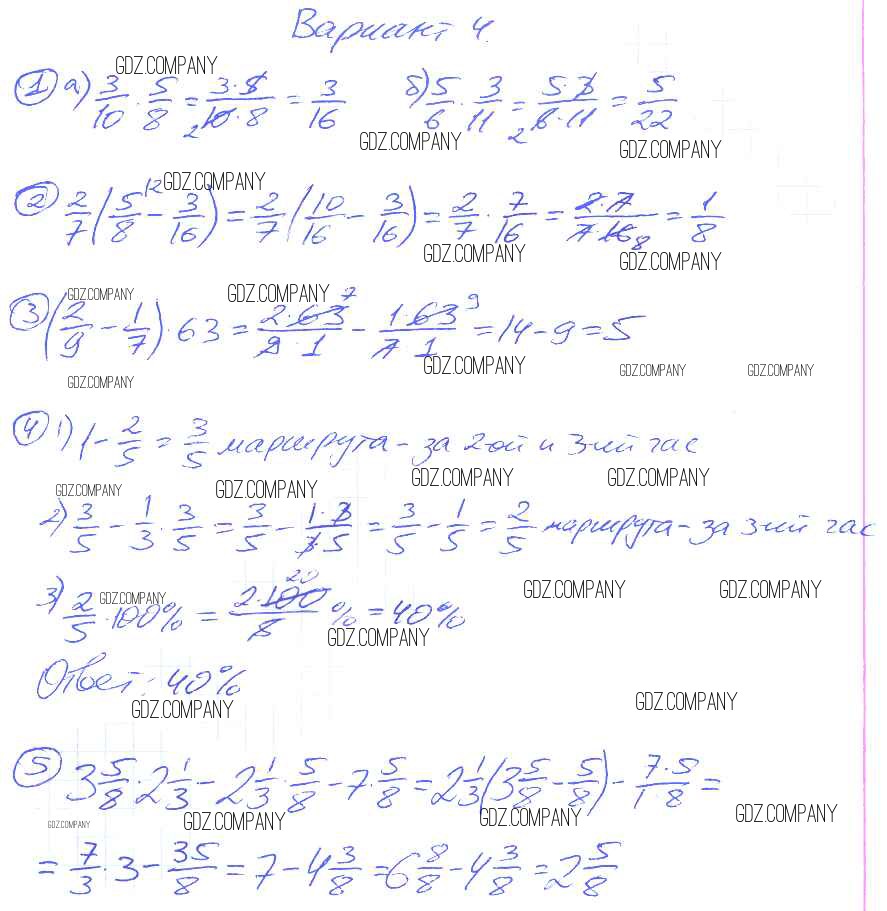 Вариант 4.
GDZ.COMPANY
① а) 3/10 · 5/8 = 3·5/10·8 = 3/16 б) 5/6 · 3/11 = 5·3/6·11 = 5/22
2 2
GDZ.COMPANY GDZ.COMPANY
GDZ.COMPANY
② 2/7 (5/8 \2 − 3/16) = 2/7 (10/16 − 3/16) = 2/7 · 7/16 = 2·7/7·16 8 = 1/8
GDZ.COMPANY GDZ.COMPANY
GDZ.COMPANY GDZ.COMPANY
③ (2/9 − 1/7) · 63 = 2·63 7/9·1 − 1·63 9/7·1 = 14 − 9 = 5
GDZ.COMPANY GDZ.COMPANY GDZ.COMPANY GDZ.COMPANY
④ 1) 1 − 2/5 = 3/5 маршрута – за 2ой и 3ий час
GDZ.COMPANY GDZ.COMPANY GDZ.COMPANY GDZ.COMPANY
2) 3/5 − 1/3 · 3/5 = 3/5 − 1·3/3·5 = 3/5 − 1/5 = 2/5 маршрута – за 3ий час
GDZ.COMPANY GDZ.COMPANY GDZ.COMPANY
3) 2/5 · 100% = 2·100 20/5 % = 40%
GDZ.COMPANY
Ответ: 40%
GDZ.COMPANY GDZ.COMPANY
⑤ 3 5/8 · 2 1/3 − 2 1/3 · 5/8 − 7 · 5/8 = 2 1/3 (3 5/8 − 5/8) − 7·5/1·8 =
GDZ.COMPANY GDZ.COMPANY GDZ.COMPANY GDZ.COMPANY
= 7/3 · 3 − 35/8 = 7 − 4 3/8 = 6 8/8 − 4 3/8 = 2 5/8